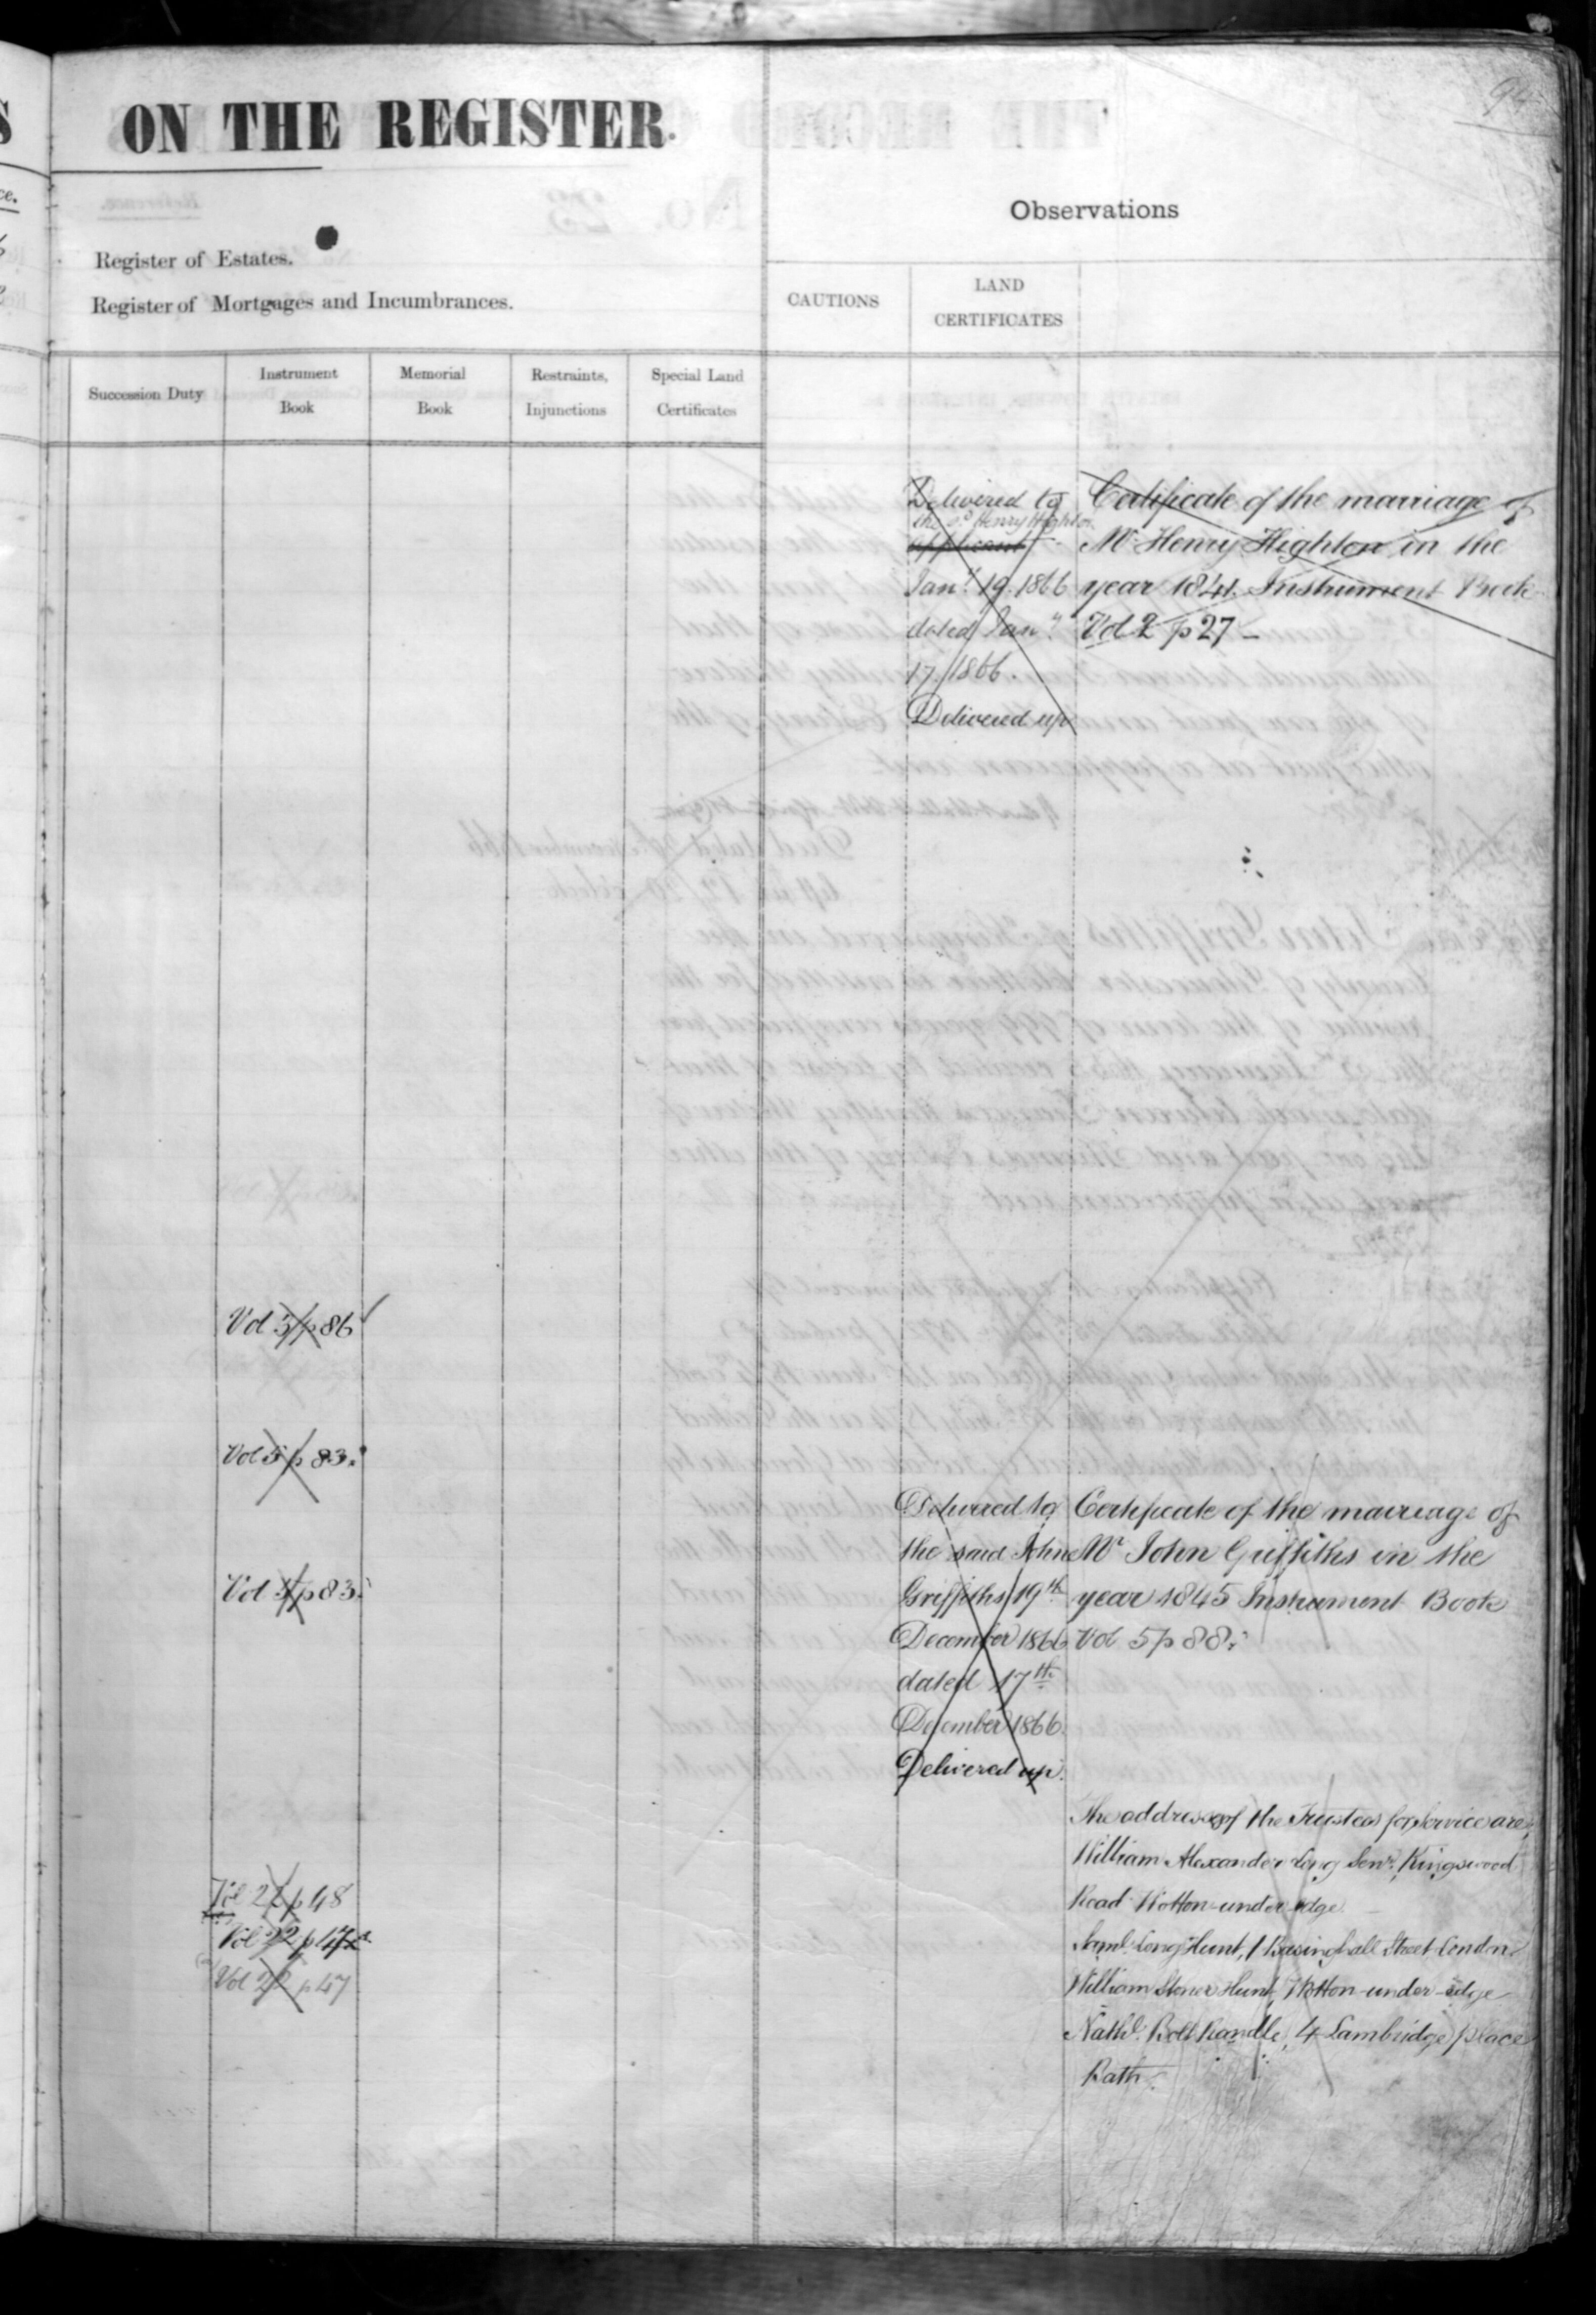 94
ON THE REGISTER.
Register of Estates.
Register of Mortgages and Incumbrances.
Observations
CAUTIONS
LAND
CERTIFICATES
Succession Duty
Instrument
Book
Memorial
Book
Restraints,
Injunctions
Special Land
Certificates
Delivered to
the sd Henry Highton
applicant
Jany 19. 1866
dated Jany
17. 1866.
Delivered up
Certificate of the marriage of
Mr Henry Highton in the
year 1841. Instrument Book
Vol 2 p 27 -
Vol 5 p 86
Vol 5 p 83.
Vol 5 p 83.
Delivered to
the said John
Griffiths 19th
December 1866
dated 17th
December 1866.
Delivered up.
Certificate of the marriage of
Mr John Griffiths in the
year 1845 Instrument Book
Vol 5 p 88.
The addresses of the Trustees for service are,
William Alexander Long Senr, Kingswood
Road Wotton-under-edge.
Saml Long Hunt, 1 Basinghall Street London
William Stoner Hunt, Wotton-under-edge
Nathl. Bolt Randle, 4 Lambridge place
Bath.
Vol 22 p 48
Vol 22 p
Vol 22 p 47